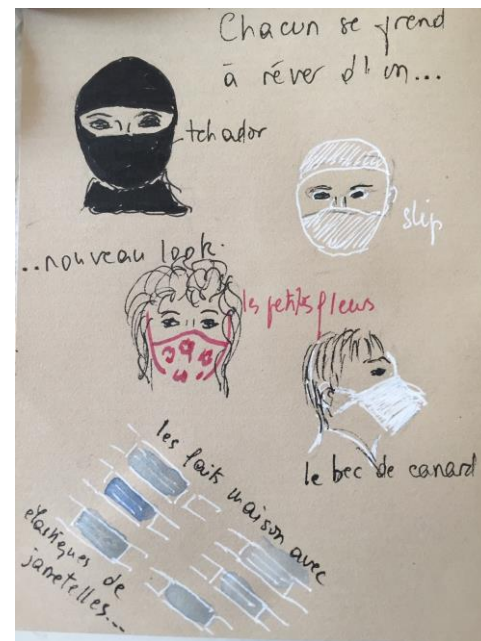 Chacun se prend
à rêver d'un...
tchador
slip
...nouveau look.
les petites fleurs
le bec de canard
les faits maison avec
élastiques de
jarretelles...